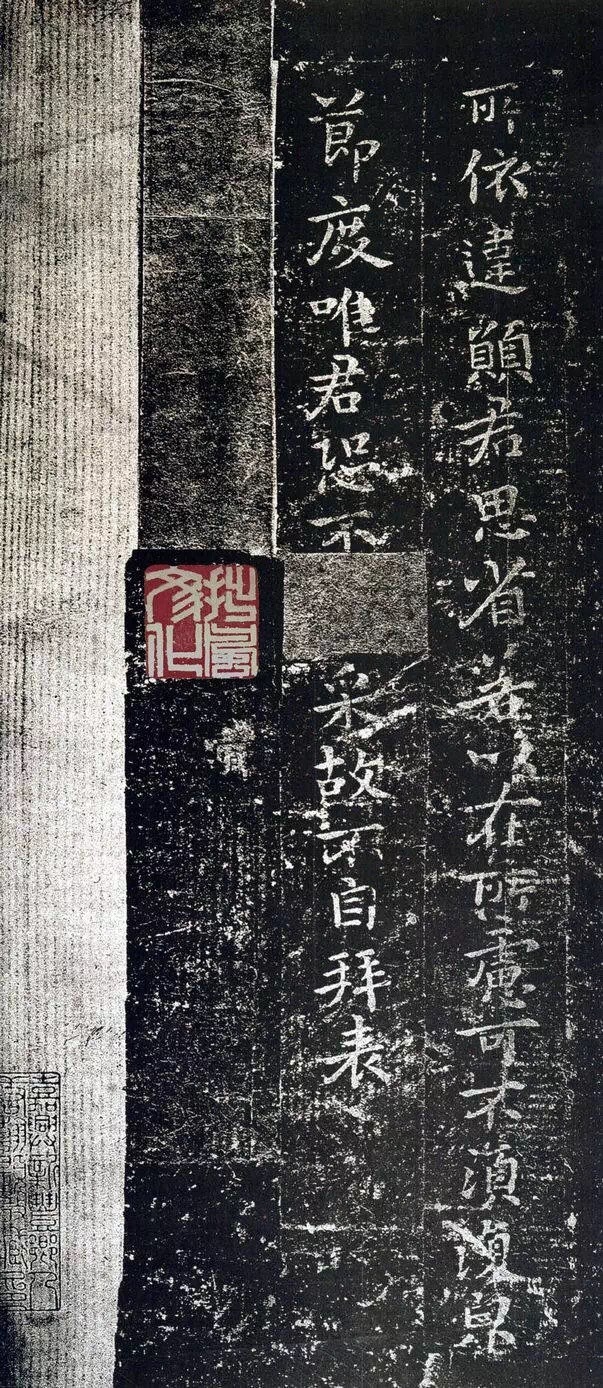 所依違願君思省若以在所慮可不須復皃
節度唯君恐不采故不自拜表
文化